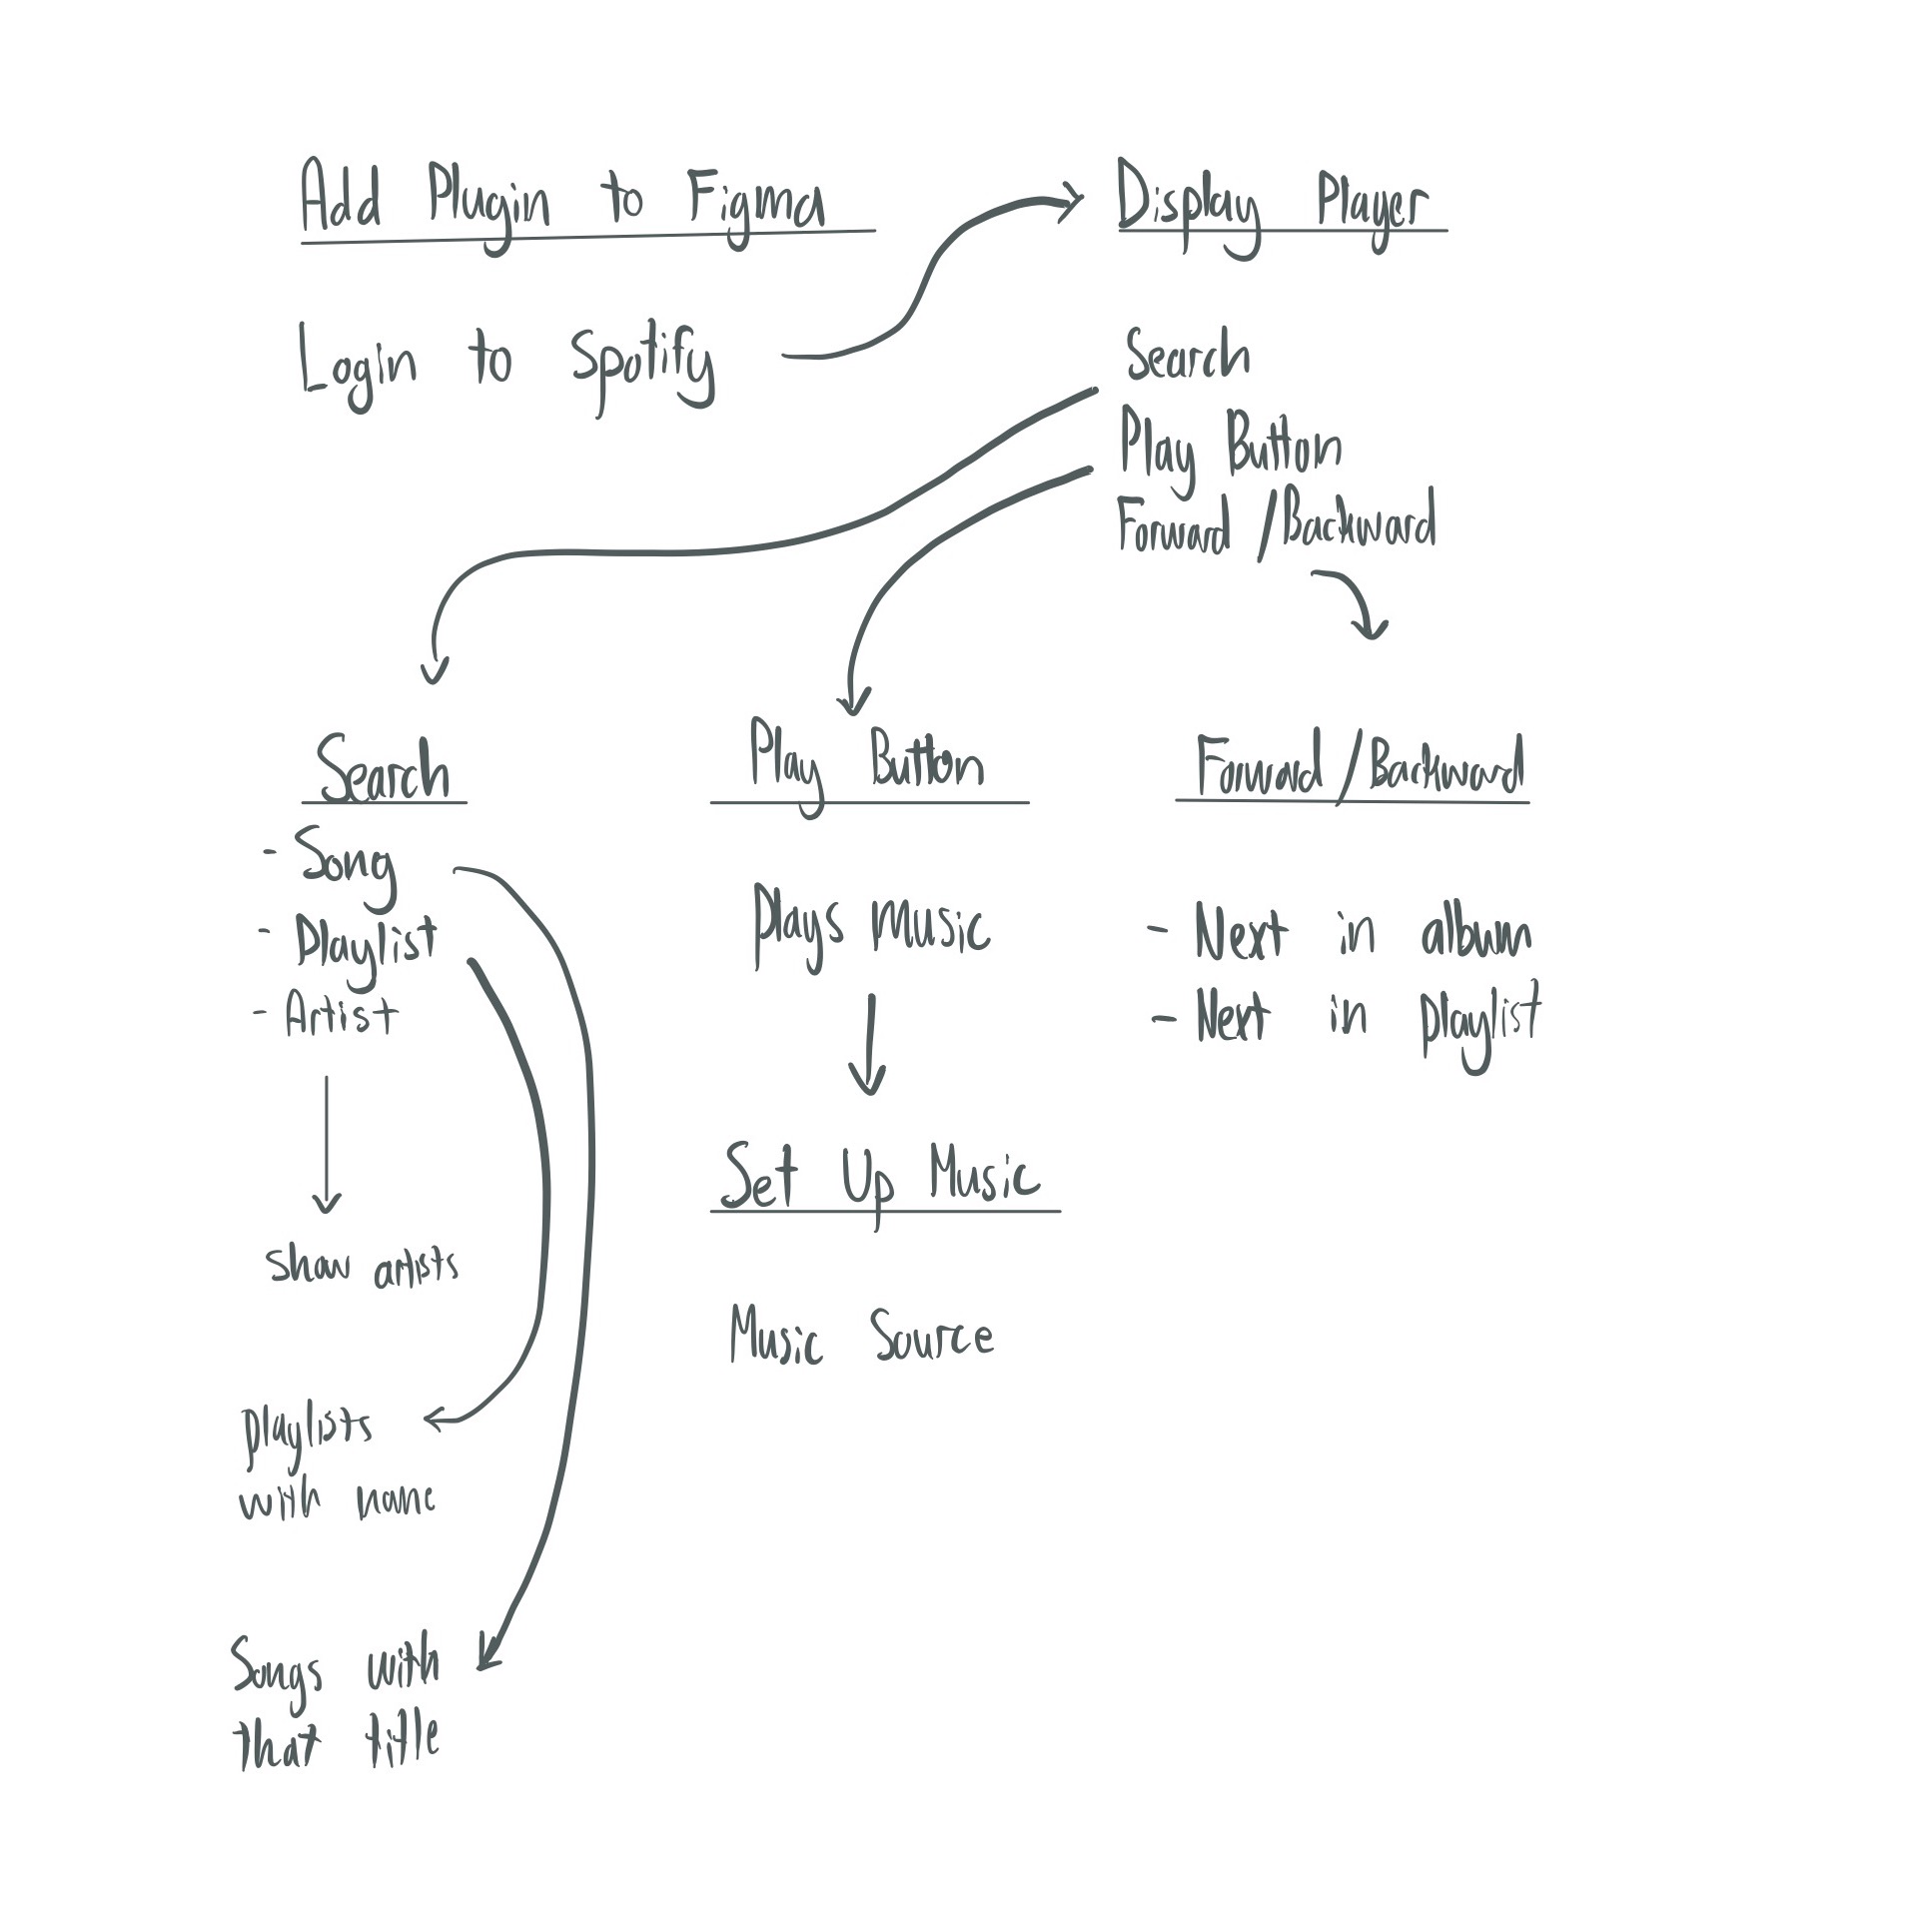 Add Plugin to Figma
Login to Spotify
Display Player
Search
Play Button
Forward / Backward
Search
- Song
- Playlist
- Artist
show artists
playlists
with name
Songs with
that title
Play Button
Plays Music
Set Up Music
Music Source
Forward / Backward
- Next in album
- Next in playlist